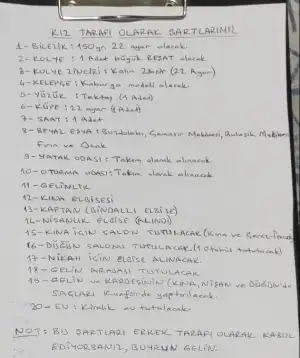 KIZ TARAFI OLARAK ŞARTLARIMIZ
1- BİLEZİK: 150 gr. 22 ayar olacak.
2- KOLYE: 1 Adet büyük REŞAT olacak
3- KOLYE ZİNCİRİ: Kalın Zincir (22 Ayar)
4- KELEPÇE: Kaburga modeli olacak.
5- YÜZÜK: Tektaş (1 Adet)
6- KÜPE: 22 ayar (1 Adet)
7- SAAT: 1 Adet
8- BEYAZ EŞYA: Buzdolabı, Çamaşır Makinesi, Bulaşık Makinesi
Fırın ve Ocak
9- YATAK ODASI: Takım olarak alınacak
10- OTURMA ODASI: Takım olarak alınacak
11- GELİNLİK
12- KINA ELBİSESİ
13- KAFTAN (BİNDALLI ELBİSE)
14- NİŞANLIK ELBİSE (ALINDI)
15- KINA İÇİN SALON TUTULACAK (Kına ve Çerez
16- DÜĞÜN SALONU TUTULACAK (1 otobüs tutulacak)
17- NİKAH İÇİN ELBİSE ALINACAK.
18- GELİN ARABASI TUTULACAK
19- GELİN ve KARDEŞİNİN (KINA, NİŞAN ve DÜĞÜN'de
SAÇLARI Kuaförde yaptırılacak.
20- EV: Kiralık ev tutulacak
NOT: BU ŞARTLARI ERKEK TARAFI OLARAK KABUL
EDİYORSANIZ, BUYRUN GELİN.